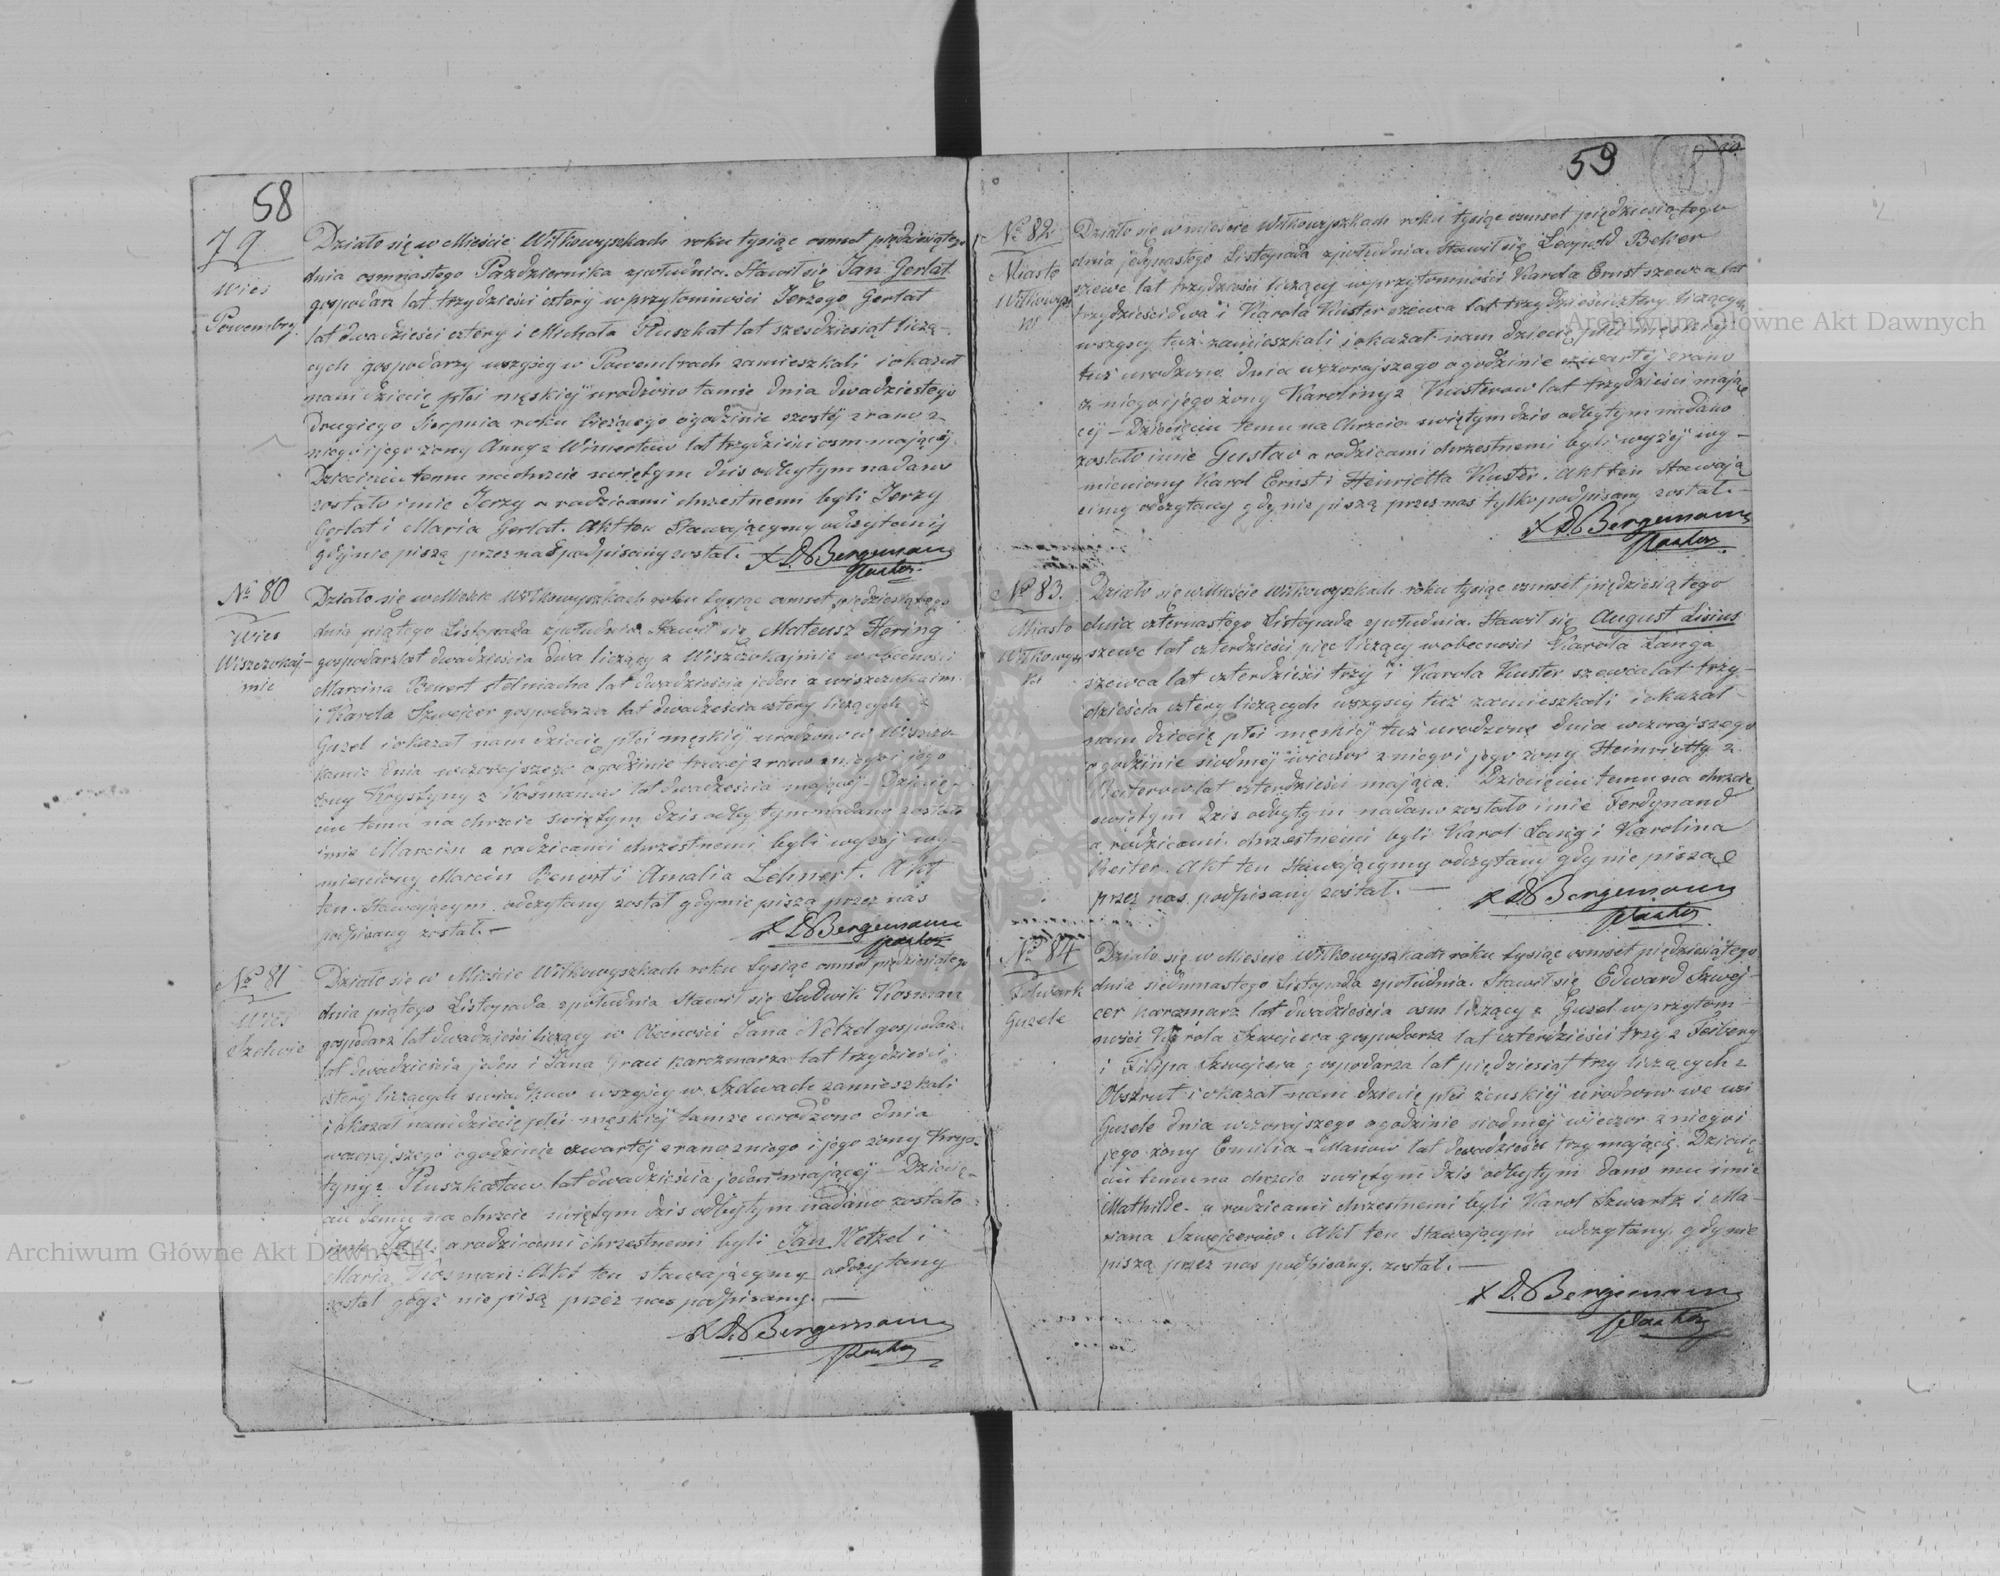 58
79
Wieś
Powembry.
Działo się w Mieście Wiłkowyszkach roku tysiąc osmset pięćdziesiątego
dnia osmnastego Października zpołudnia. Stawił się Jan Gerlat
gospodarz lat trzydzieści cztery w przytomności Jerzego Gerlat
lat dwadzieścia cztery i Michała Pluszkat lat szesdziesiąt liczą-
cych gospodarzy wszyscy w Powembrach zamieszkali i okazał
nam dziecię płci męskiej urodzone tamże dnia dwudziestego
drugiego Sierpnia roku bieżącego ogodzinie szostej zrana z
niego i jego żony Anny z lat trzydzieści osm mającej.
Dziecięciu temu na chrzcie świętym dziś odbytym nadano
zostało imie Jerzy a rodzicami chrzestnemi byli Jerzy
Gerlat i Maria Gerlat. Akt ten Stawającymy odczytany
gdy nie piszą przez nas podpisany został. Bergemann
Pastor.
№ 80
Wieś
Wiszczokaj-
mie
Działo się w Mieście Wiłkowyszkach roku tysiąc osmset pięćdziesiątego
dnia piątego Listopada zpołudnia Stawił się Mateusz Hering
gospodarz lat dwadzieścia dwa liczący z Wiszczokajmie w obecności
Marcina Benert stelmacha lat dwadzieścia jeden z
i Karola Szwejcer gospodarza lat dwadzieścia cztery liczących z
Guzel i okazał nam dziecię płci męskiej urodzone w Wiszczo-
kamie dnia wczorajszego ogodzinie trzeciej zrana z niego i jego
żony Krystyny z Kosmanow lat dwadzieścia mającej - Dziecię-
ciu temu na chrzcie świętym dziś odbytym nadano zostało
imie Marcin a rodzicami chrzestnemi byli wyżej wy-
mieniony Marcin Benert i Amalia Lehnert. Akt
ten Stawającym odczytany został gdy nie piszą przez nas
podpisany został.- Bergemann
Pastor
№ 81
Wieś
Działo się w Mieście Wiłkowyszkach roku tysiąc osmset pięćdziesiątego
dnia piątego Listopada zpołudnia Stawił się Ludwik Kosman
gospodarz lat dwadzieści liczący w Obecności Jana Netzel gospodarz
lat dwadzieścia jeden i Jana Grau karczmarza lat trzydzieści
cztery liczących wszyscy w zamieszkali
i okazał nam dziecię płci męskiej tamże urodzone dnia
wczorajszego ogodzinie czwartej zrana z niego i jego żony Krys-
tyny z Pluszkatow lat dwadzieścia jeden mającej - Dziecię-
ciu temu na chrzcie świętym dziś odbytym nadano zostało
imie Jan a rodzicami chrzestnemi byli Jan Netzel i
Maria Kosman: Akt ten stawającymy odczytany
został gdyż nie piszą przez nas podpisany.-
Bergemann
Pastor
59
№ 82
Miasto
Działo się w mieście Wiłkowyszkach roku tysiąc osmset pięćdziesiątego
dnia jedynastego Listopada zpołudnia. Stawił się Leopold Beker
szewc lat trzydzieści liczący w przytomności Karola Ernst szewca lat
trzydzieści dwa i Karola Kuster szewca lat trzydzieści cztery liczących
wszyscy tuż zamieszkali i okazał nam dziecię płci męskiej
tuż urodzone dnia wczorajszego ogodzinie czwartej zrana
z niego i jego żony Karoliny z Kusterow lat trzydzieści mają-
cej - Dziecięciu temu na Chrzcie świętym dziś odbytym nadano
zostało imie Gustav a rodzicami chrzestnemi byli wyżej wy-
mieniony Karol Ernst i Heinrietta Kuster. Akt ten Stawają
cymy odczytany gdy nie piszą przez nas tylko podpisany został.-
Bergemann
Pastor.
№ 83.
Miasto
Działo się w Mieście Wiłkowyszkach roku tysiąc osmset pięćdziesiątego
dnia czternastego Listopada zpołudnia. Stawił się August Lisius
szewc lat czterdzieści pięc liczący wobecności Karola Langa
szewca lat czterdzieści trzy i Karola Kuster szewca lat trzy-
dzieścia cztery liczących wszyscy tuż zamieszkali i okazał
nam dziecię płci męskiej tuż urodzone dnia wczorajszego
ogodzinie siodmej wieczor z niego i jego żony Heinrietty z
Reiterow lat czterdzieści mająca. Dziecięciu temu na chrzcie
świętym dziś odbytym nadano zostało imie Ferdynand
a rodzicami chrzestnemi byli Karol Lang i Karolina
Reiter. Akt ten Stawającymy odczytany gdy nie piszą
przez nas podpisany został.- Bergemann
Pastor
№ 84
Folwark
Guzele
Działo się w Mieście Wiłkowyszkach roku tysiąc osmset pięćdziesiątego
dnia siedmnastego Listopada zpołudnia. Stawił się Edward Szwej-
cer karczmarz lat dwadzieścia osm liczący z Guzel w przytom-
ności Karola Szwejcera gospodarza lat czterdzieści trzy z
i Filipa Szwejcera gospodarza lat pięćdziesiąt trzy liczących z
Obszrut i okazał nam dziecię płci żeńskiej urodzone we wsi
Guzele dnia wczorajszego ogodzinie siodmej wieczor z niego i
jego żony Emilia z Manow lat dwadzieścia trzy mającej. Dziecię
ciu temu na chrzcie świętym dziś odbytym dano mu imie
Mathilde - a rodzicami chrzestnemi byli Karol Szwartz i Ma-
riana Szwejcerow. Akt ten Stawającym odczytany, gdy nie
piszą przez nas podpisany został.-
Bergemann
Pastor
Archiwum Główne Akt Dawnych
Archiwum Główne Akt Dawnych